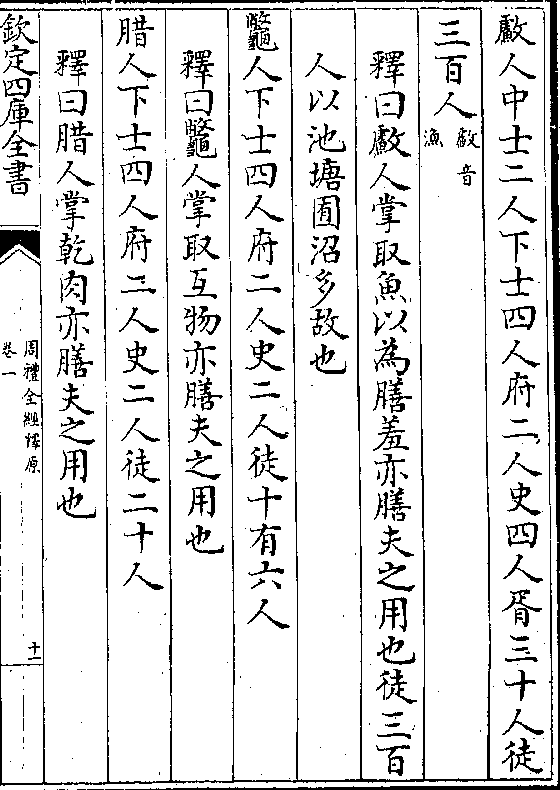 䱷人中士二人下士四人府二人史四人胥三十人徒
三百人䱷音漁
釋曰䱷人掌取魚以為膳羞亦膳夫之用也徒三百
人以池塘囿沼多故也
鼈人下士四人府二人史二人徒十有六人
釋曰鼈人掌取互物亦膳夫之用也
腊人下士四人府二人史二人徒二十人
釋曰腊人掌乾肉亦膳夫之用也
欽定四庫全書
周禮全經釋原
卷一
十一